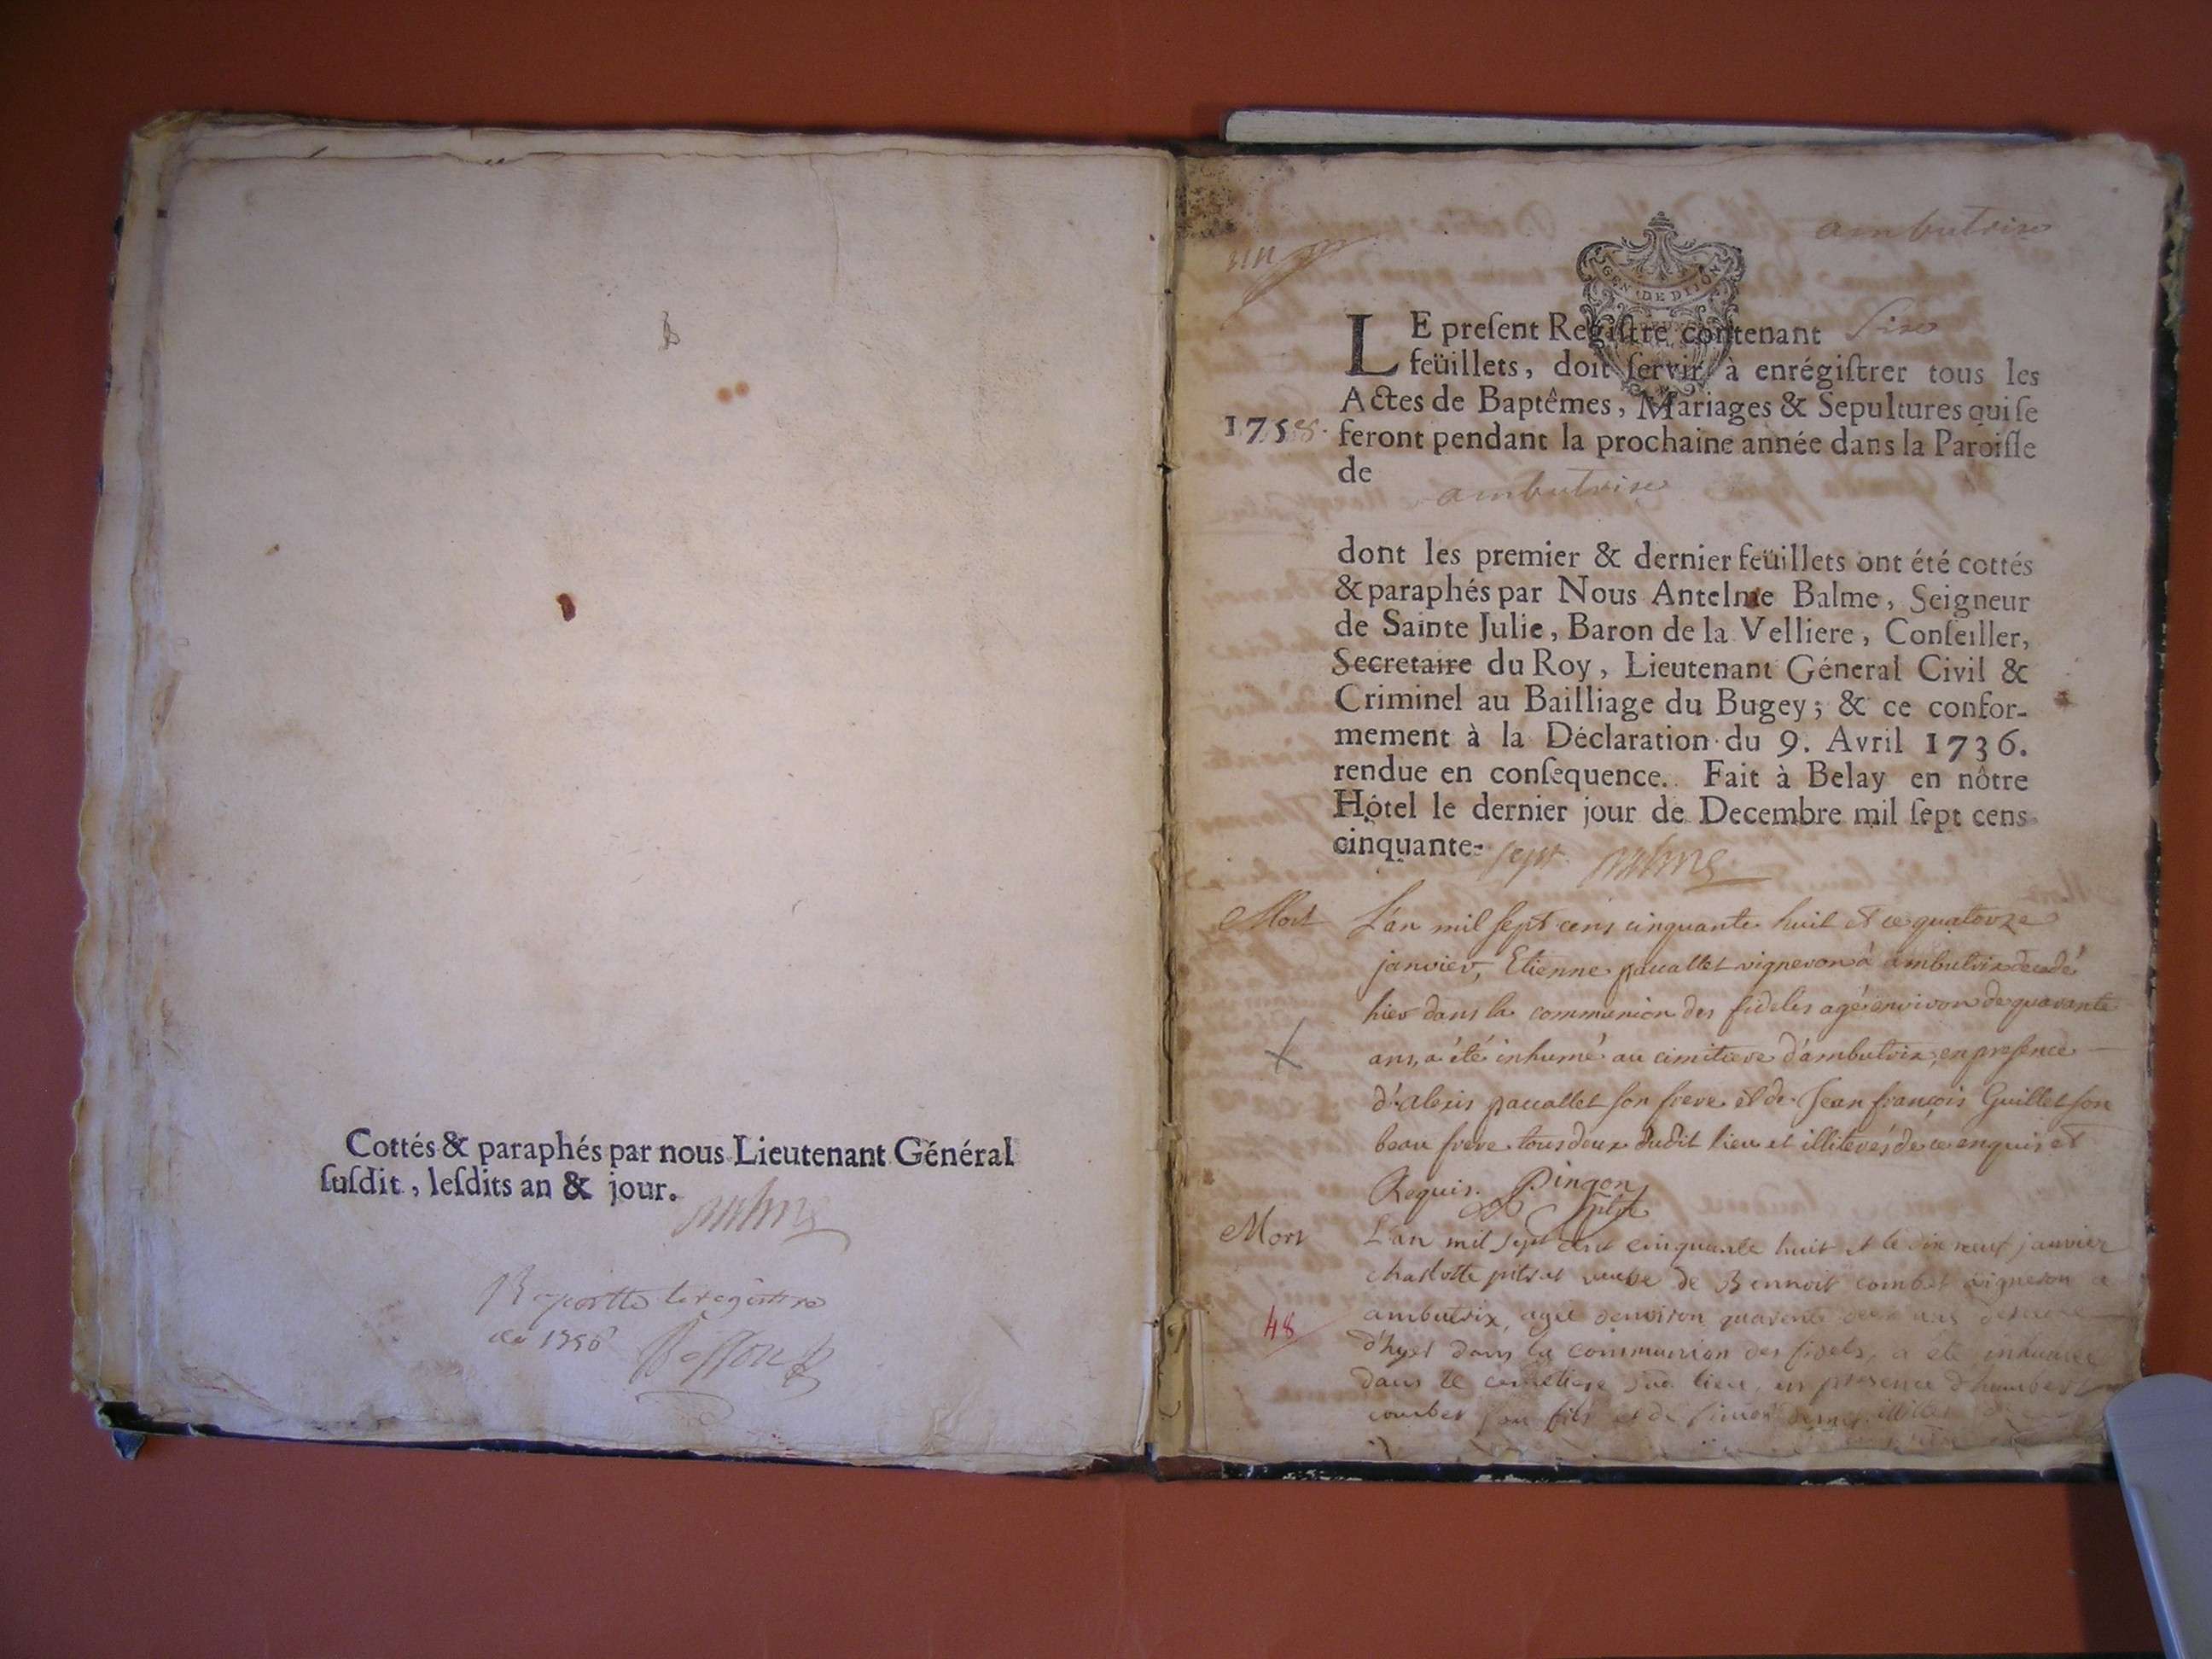 Cottés & paraphés par nous Lieutenant Général
ſuſdit, leſdits an & jour.
Balme
Raporttes le registre
de 1756
un
ambutrix
GEN DE DIJON
LE preſent Regiſtre contenant Six
feüillets, doit ſervir à enrégiſtrer tous les
Actes de Baptêmes, Mariages & Sepultures qui ſe
1758. feront pendant la prochaine année dans la Paroiſſe
de
ambutrix
dont les premier & dernier feüillets ont été cottés
& paraphés par Nous Antelme Balme, Seigneur
de Sainte Julie, Baron de la Velliere, Conſeiller,
Secretaire du Roy, Lieutenant Géneral Civil &
Criminel au Bailliage du Bugey; & ce confor-
mement à la Déclaration du 9. Avril 1736.
rendue en conſequence. Fait à Belay en nôtre
Hôtel le dernier jour de Decembre mil ſept cens
cinquante-sept Balme
Mort L'an mil sept cens cinquante huit et ce quatorze
janvier, Etienne paccallet vigneron à ambutrix decedé
hier dans la communion des fideles agé environ de quarante
ans, a été inhumé au cimitiere d'ambutrix, en presence
d'alexis paccallet son frere et de Jean françois Guillet son
beau frere tous deux dudit lieu et illiterés de ce enquis et
Requis. Pingon
Mort L'an mil sept cent cinquante huit et le dix neuf janvier
charlotte veuve de Bennoit combet vigneron a
ambutrix, agée denviron quarente ans
48 d'hyer dans la communion des fidels, a été inhumée
dans le cemetiere dud. lieu, en presence d'humbert
combet son fils et de simon